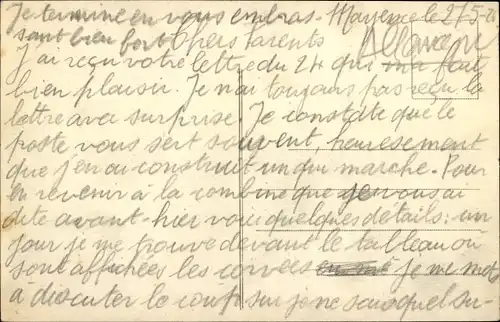 Je termine en vous embras- Mayence le 27 5
sant bien fort Chers Parents
Allemagne
J'ai reçu votre lettre du 24 qui m'a fait
bien plaisir. Je n'ai toujours pas reçu la
lettre avec surprise. Je constate que le
poste vous sert souvent, heuresement
que j'en ai construit un qui marche. Pour
en revenir à la combine que je vous ai
dite avant-hier voici quelques détails: un
jour je me trouve devant le tableau ou
sont affichées les corvées je me mets
à discuter le coup sur je ne sais quel su-